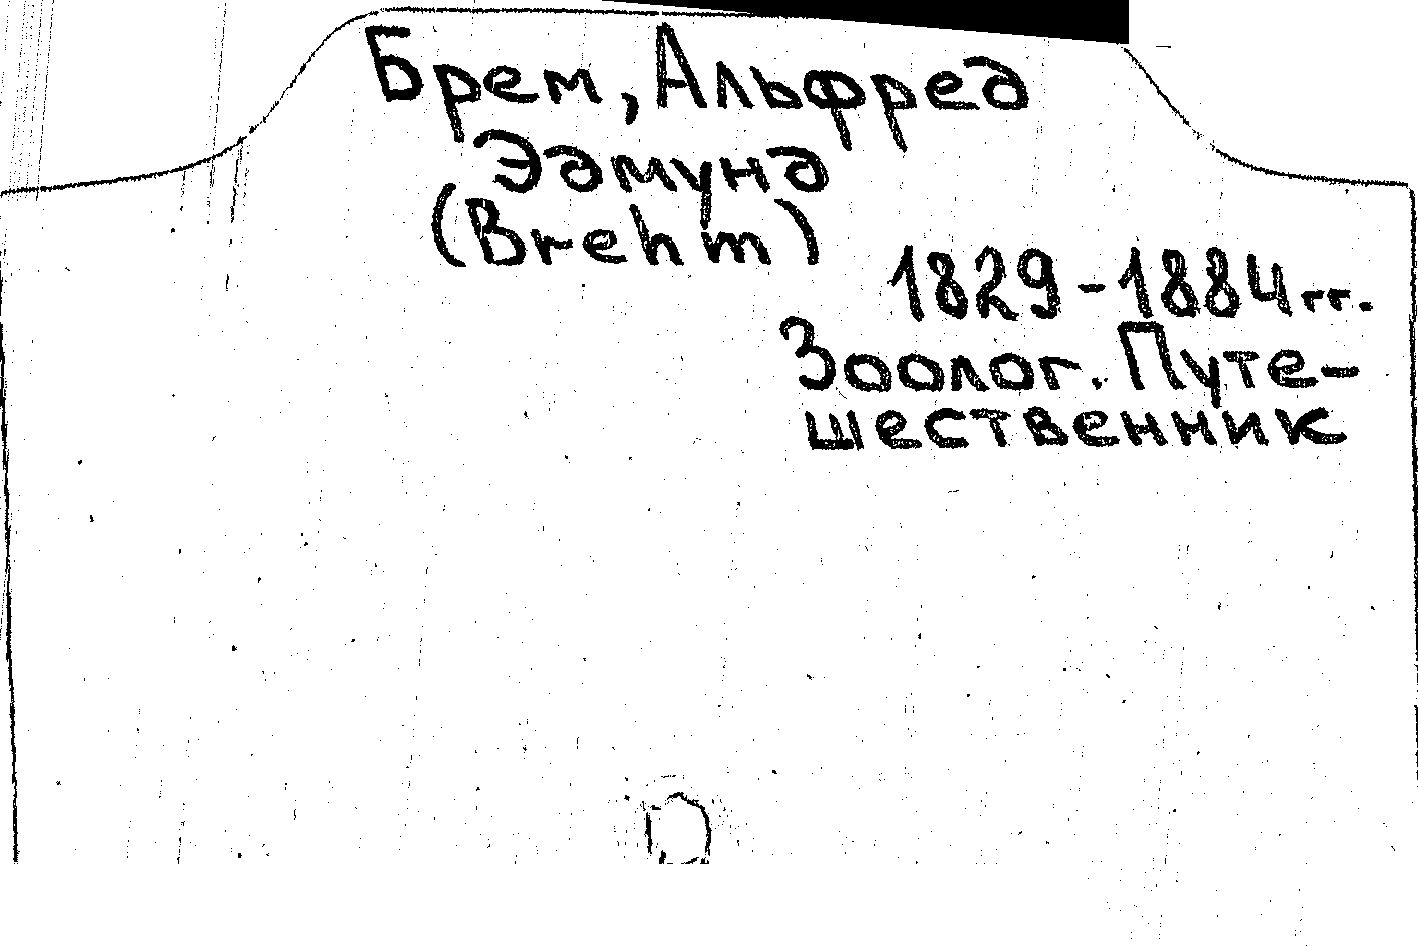 Брем, Альфред
Эдмунд
(Brehm)
1829-1884 гг.
Зоолог. Путе-
шественник